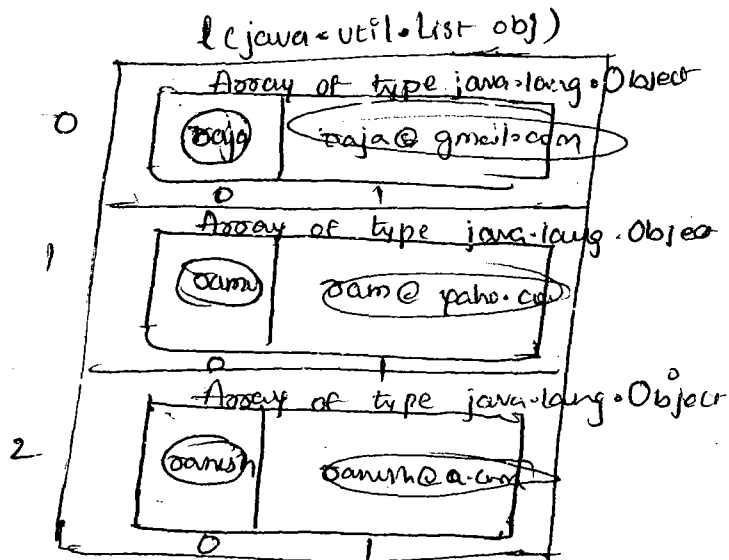 l (java.util.List obj)
Array of type java.lang.Object
0
raja raja@gmail.com
0 1
Array of type java.lang.Object
1
ram@yaho.com
0 1
Array of type java.lang.Object
2
ranish ranish@a.com
0 1